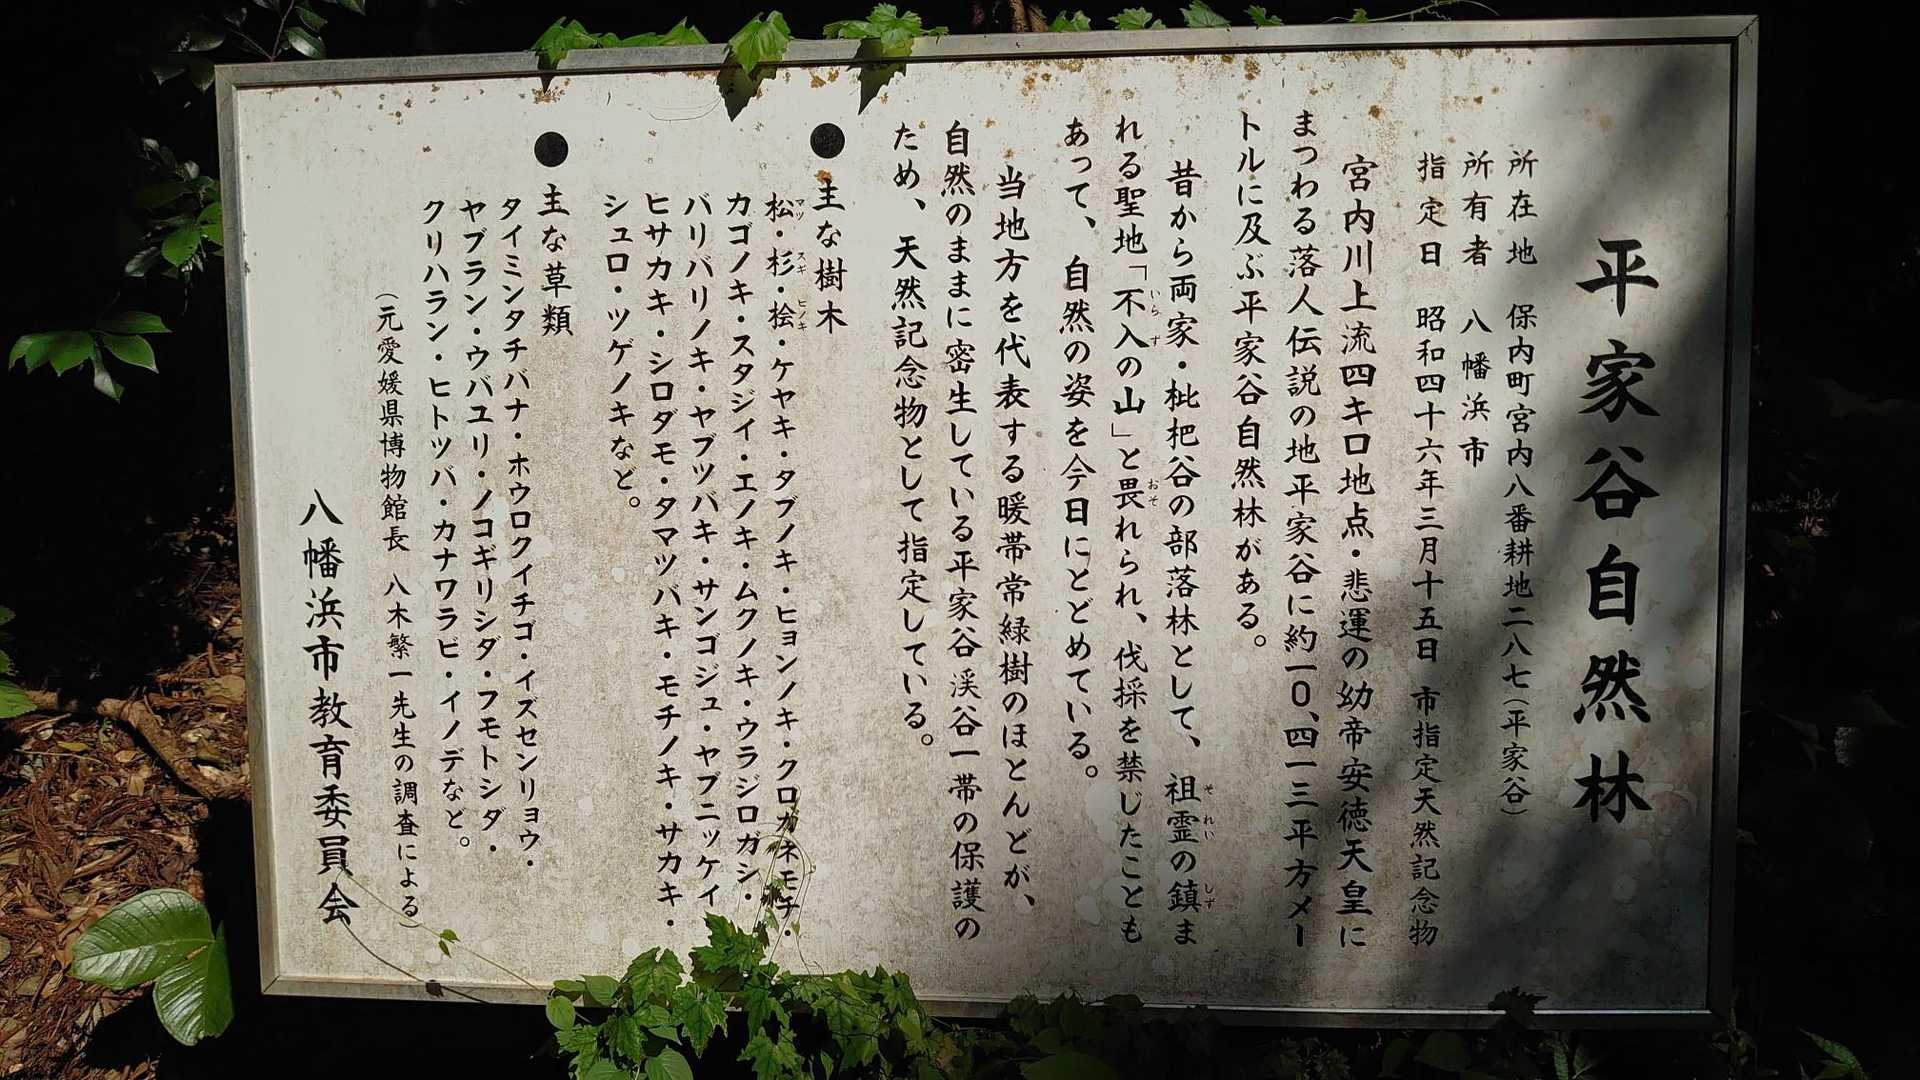 平家谷自然林
所在地　保内町宮内八番耕地二八七（平家谷）
所有者　八幡浜市
指定日　昭和四十六年三月十五日　市指定天然記念物
宮内川上流四キロ地点・悲運の幼帝安徳天皇に
まつわる落人伝説の地平家谷に約一〇、四一三平方メー
トルに及ぶ平家谷自然林がある。
昔から両家・枇杷谷の部落林として、祖霊の鎮ま
れる聖地「不入の山」と畏れられ、伐採を禁じたことも
あって、自然の姿を今日にとどめている。
当地方を代表する暖帯常緑樹のほとんどが、
自然のままに密生している平家谷渓谷一帯の保護の
ため、天然記念物として指定している。
●主な樹木
松・杉・桧・ケヤキ・タブノキ・ヒョンノキ・クロガネモチ・
カゴノキ・スタジイ・エノキ・ムクノキ・ウラジロガシ・
バリバリノキ・ヤブツバキ・サンゴジュ・ヤブニッケイ
ヒサカキ・シロダモ・タマツバキ・モチノキ・サカキ・
シュロ・ツゲノキなど。
●主な草類
タイミンタチバナ・ホウロクイチゴ・イズセンリョウ・
ヤブラン・ウバユリ・ノコギリシダ・フモトシダ・
クリハラン・ヒトツバ・カナワラビ・イノデなど。
（元愛媛県博物館長　八木繁一先生の調査による）
八幡浜市教育委員会